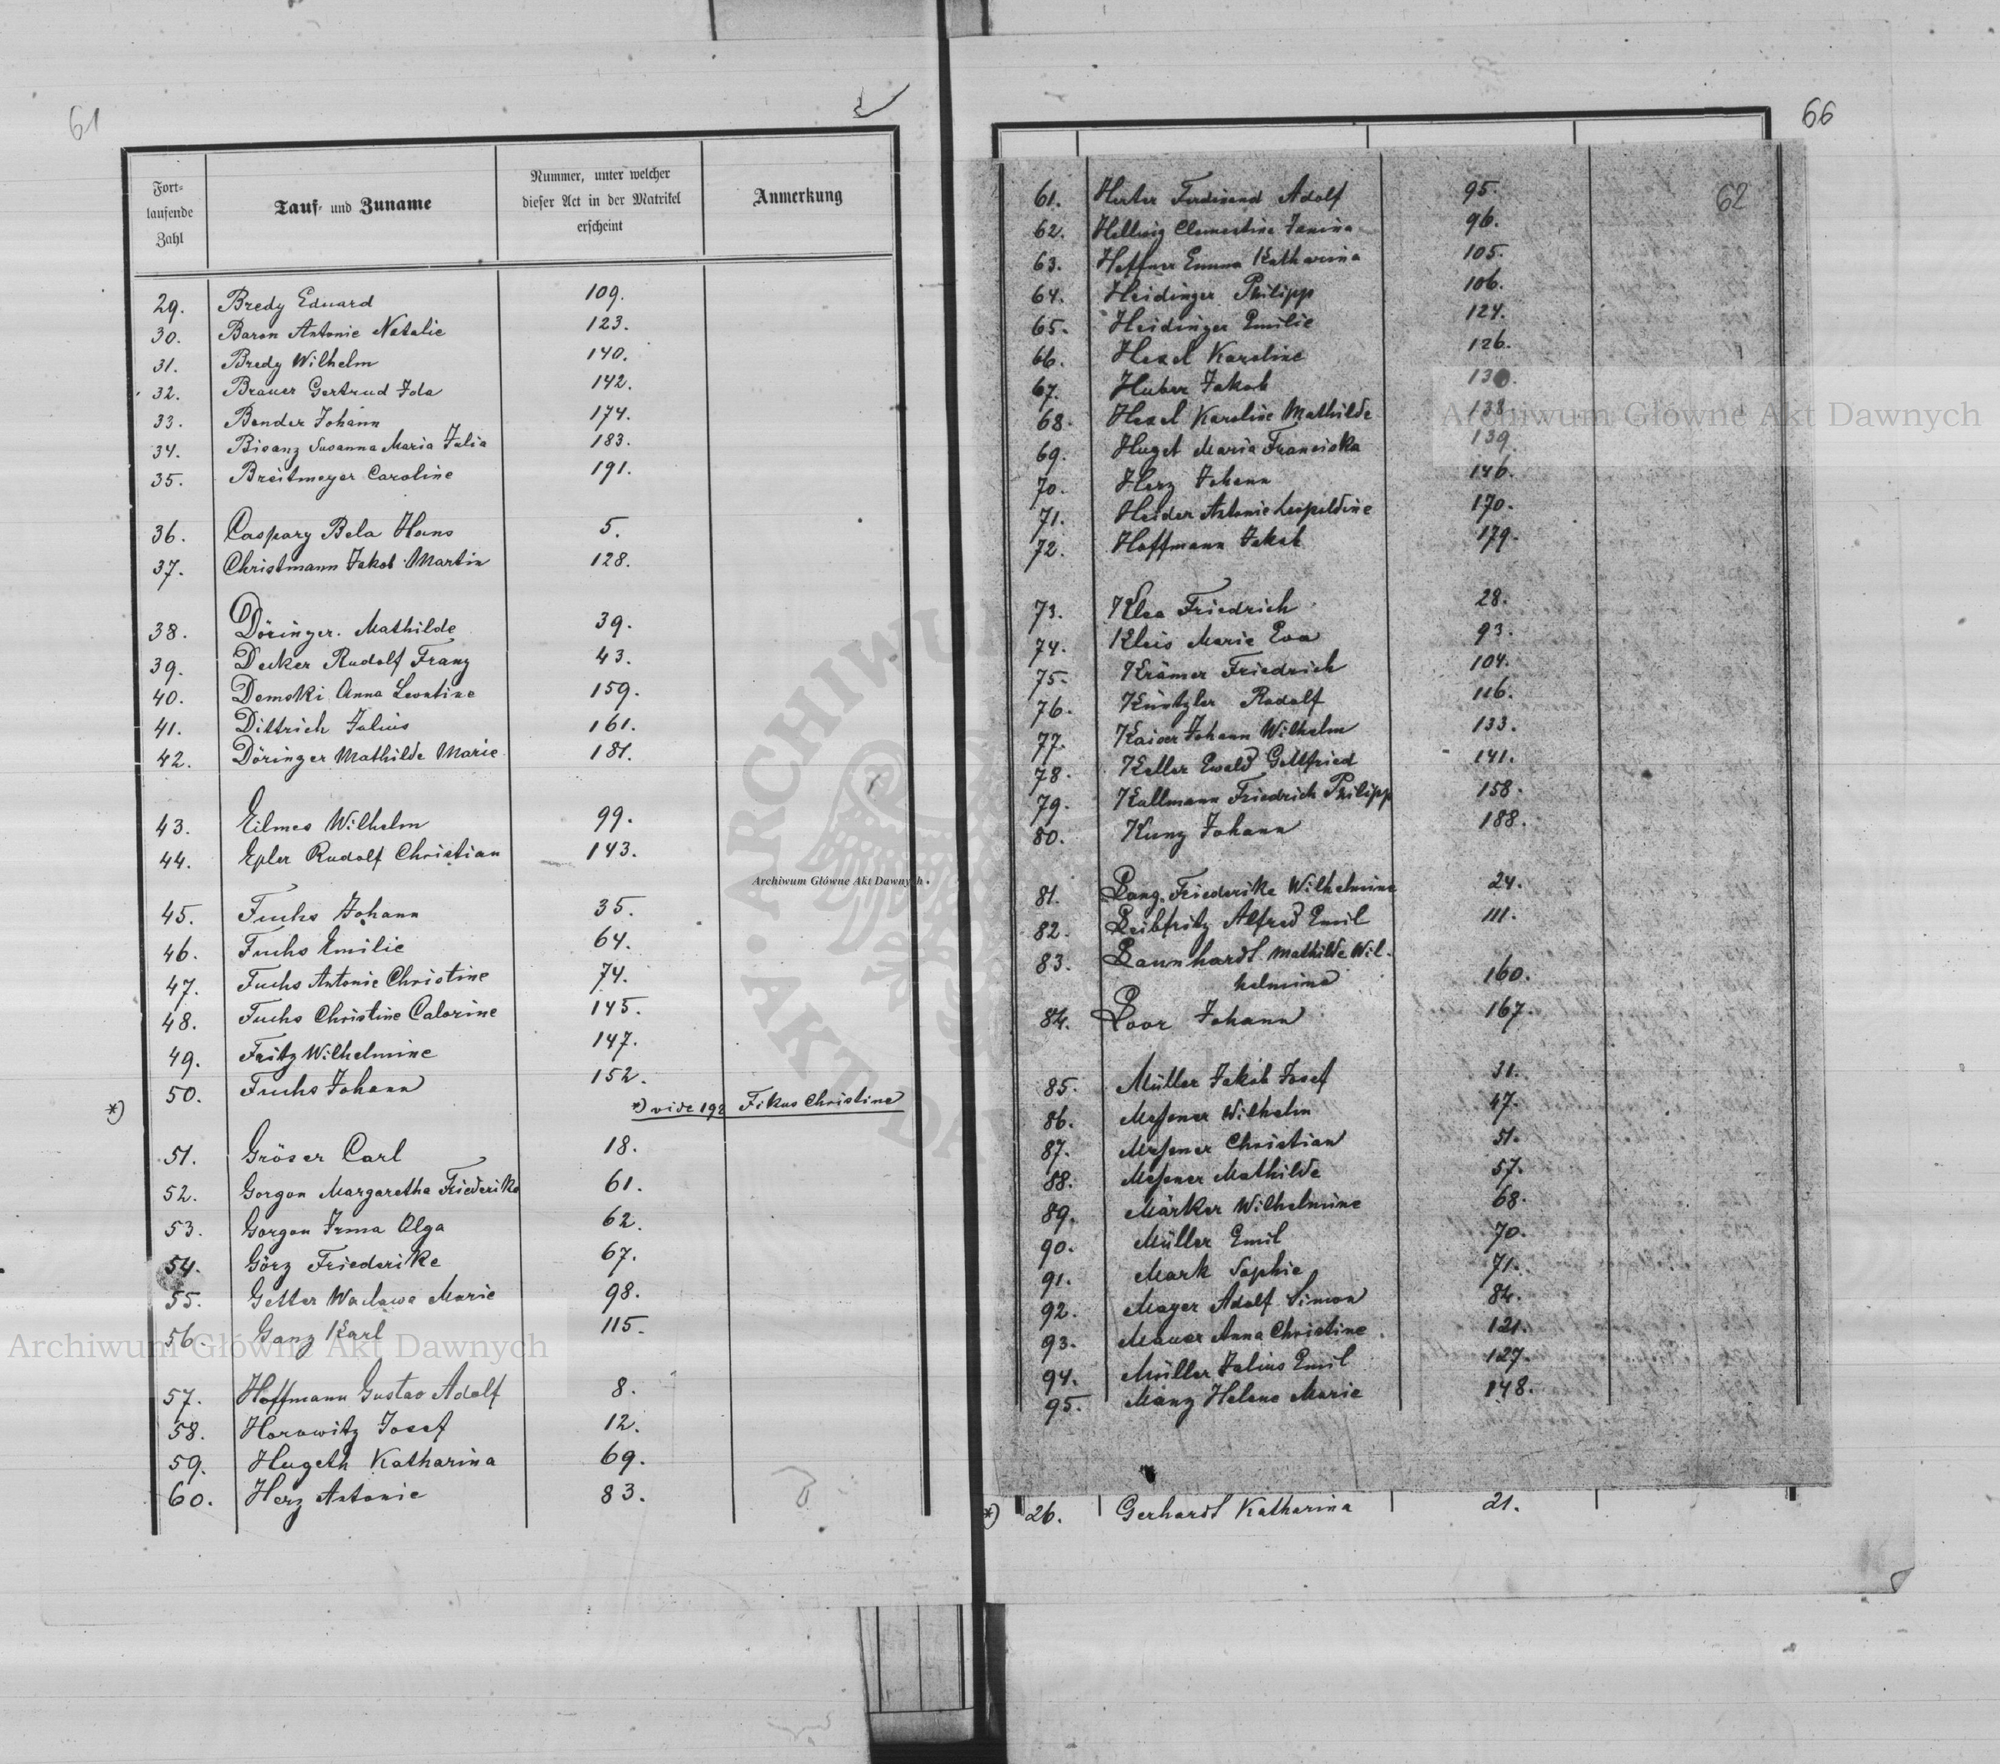 61
Fort-
laufende
Zahl
Tauf- und Zuname
Nummer, unter welcher
dieser Act in der Matrikel
erscheint
Anmerkung
29. Bredy Eduard 109.
30. Baron Antonie Natalie 123.
31. Bredy Wilhelm 140.
32. Brauer Gertrud Ida 142.
33. Bender Johann 174.
34. Bisanz Susanna Maria Julia 183.
35. Breitmeyer Caroline 191.
36. Caspary Bela Hans 5.
37. Christmann Jakob Martin 128.
38. Döringer Mathilde 39.
39. Decker Rudolf Franz 43.
40. Demski Anna Leontine 159.
41. Dittrich Julius 161.
42. Döringer Mathilde Marie 181.
43. Eilmes Wilhelm 99.
44. Epler Rudolf Christian 143.
45. Fuchs Johann 35.
46. Fuchs Emilie 64.
47. Fuchs Antonie Christine 74.
48. Fuchs Christine Calorine 145.
49. Fritz Wilhelmine 147.
50. Fuchs Johann 152.
*) *) vide 192 Fikus Christine
51. Gröser Carl 18.
52. Gorgon Margaretha Friederike 61.
53. Gorgon Irma Olga 62.
54. Görz Friederike 67.
55. Getter Waclawa Marie 98.
56. Ganz Karl 115.
57. Hoffmann Gustav Adolf 8.
58. Horowitz Josef 12.
59. Hugeth Katharina 69.
60. Herz Antonie 83.
66
62
61. Herter Ferdinand Adolf 95.
62. Hellwig Clementine Janina 96.
63. Heffner Emma Katharina 105.
64. Heidinger Philipp 106.
65. Heidinger Emilie 124.
66. Hexel Karoline 126.
67. Huber Jakob 130.
68. Hexel Karoline Mathilde 138
69. Huget Maria Franciska 139
70. Herz Johann 146.
71. Heider Antonie Leopoldine 170.
72. Hoffmann Jakob 179.
73. Klee Friedrich 28.
74. Kleis Marie Eva 93.
75. Krämer Friedrich 104.
76. Rudolf 116.
77. Kaiser Johann Wilhelm 133.
78. Keller Ewald Gottfried 141.
79. Kallmann Friedrich Philipp 158.
80. Kunz Johann 188.
81. Lang Friederike Wilhelmine 24.
82. Leibfritz Alfred Emil 111.
83. Launhardt Mathilde Wil-
helmine 160.
84. Loor Johann 167.
85. Müller Jakob Josef 31.
86. Messner Wilhelm 47.
87. Messner Christian 51.
88. Messner Mathilde 57.
89. Märker Wilhelmine 68.
90. Müller Emil 70.
91. Mark Sophie 71.
92. Mayer Adolf Simon 84.
93. Mauer Anna Christine 121.
94. Müller Julius Emil 127.
95. Manz Helene Marie 148.
*) 26. Gerhardt Katharina 21.
Archiwum Główne Akt Dawnych
Archiwum Główne Akt Dawnych
Archiwum Główne Akt Dawnych